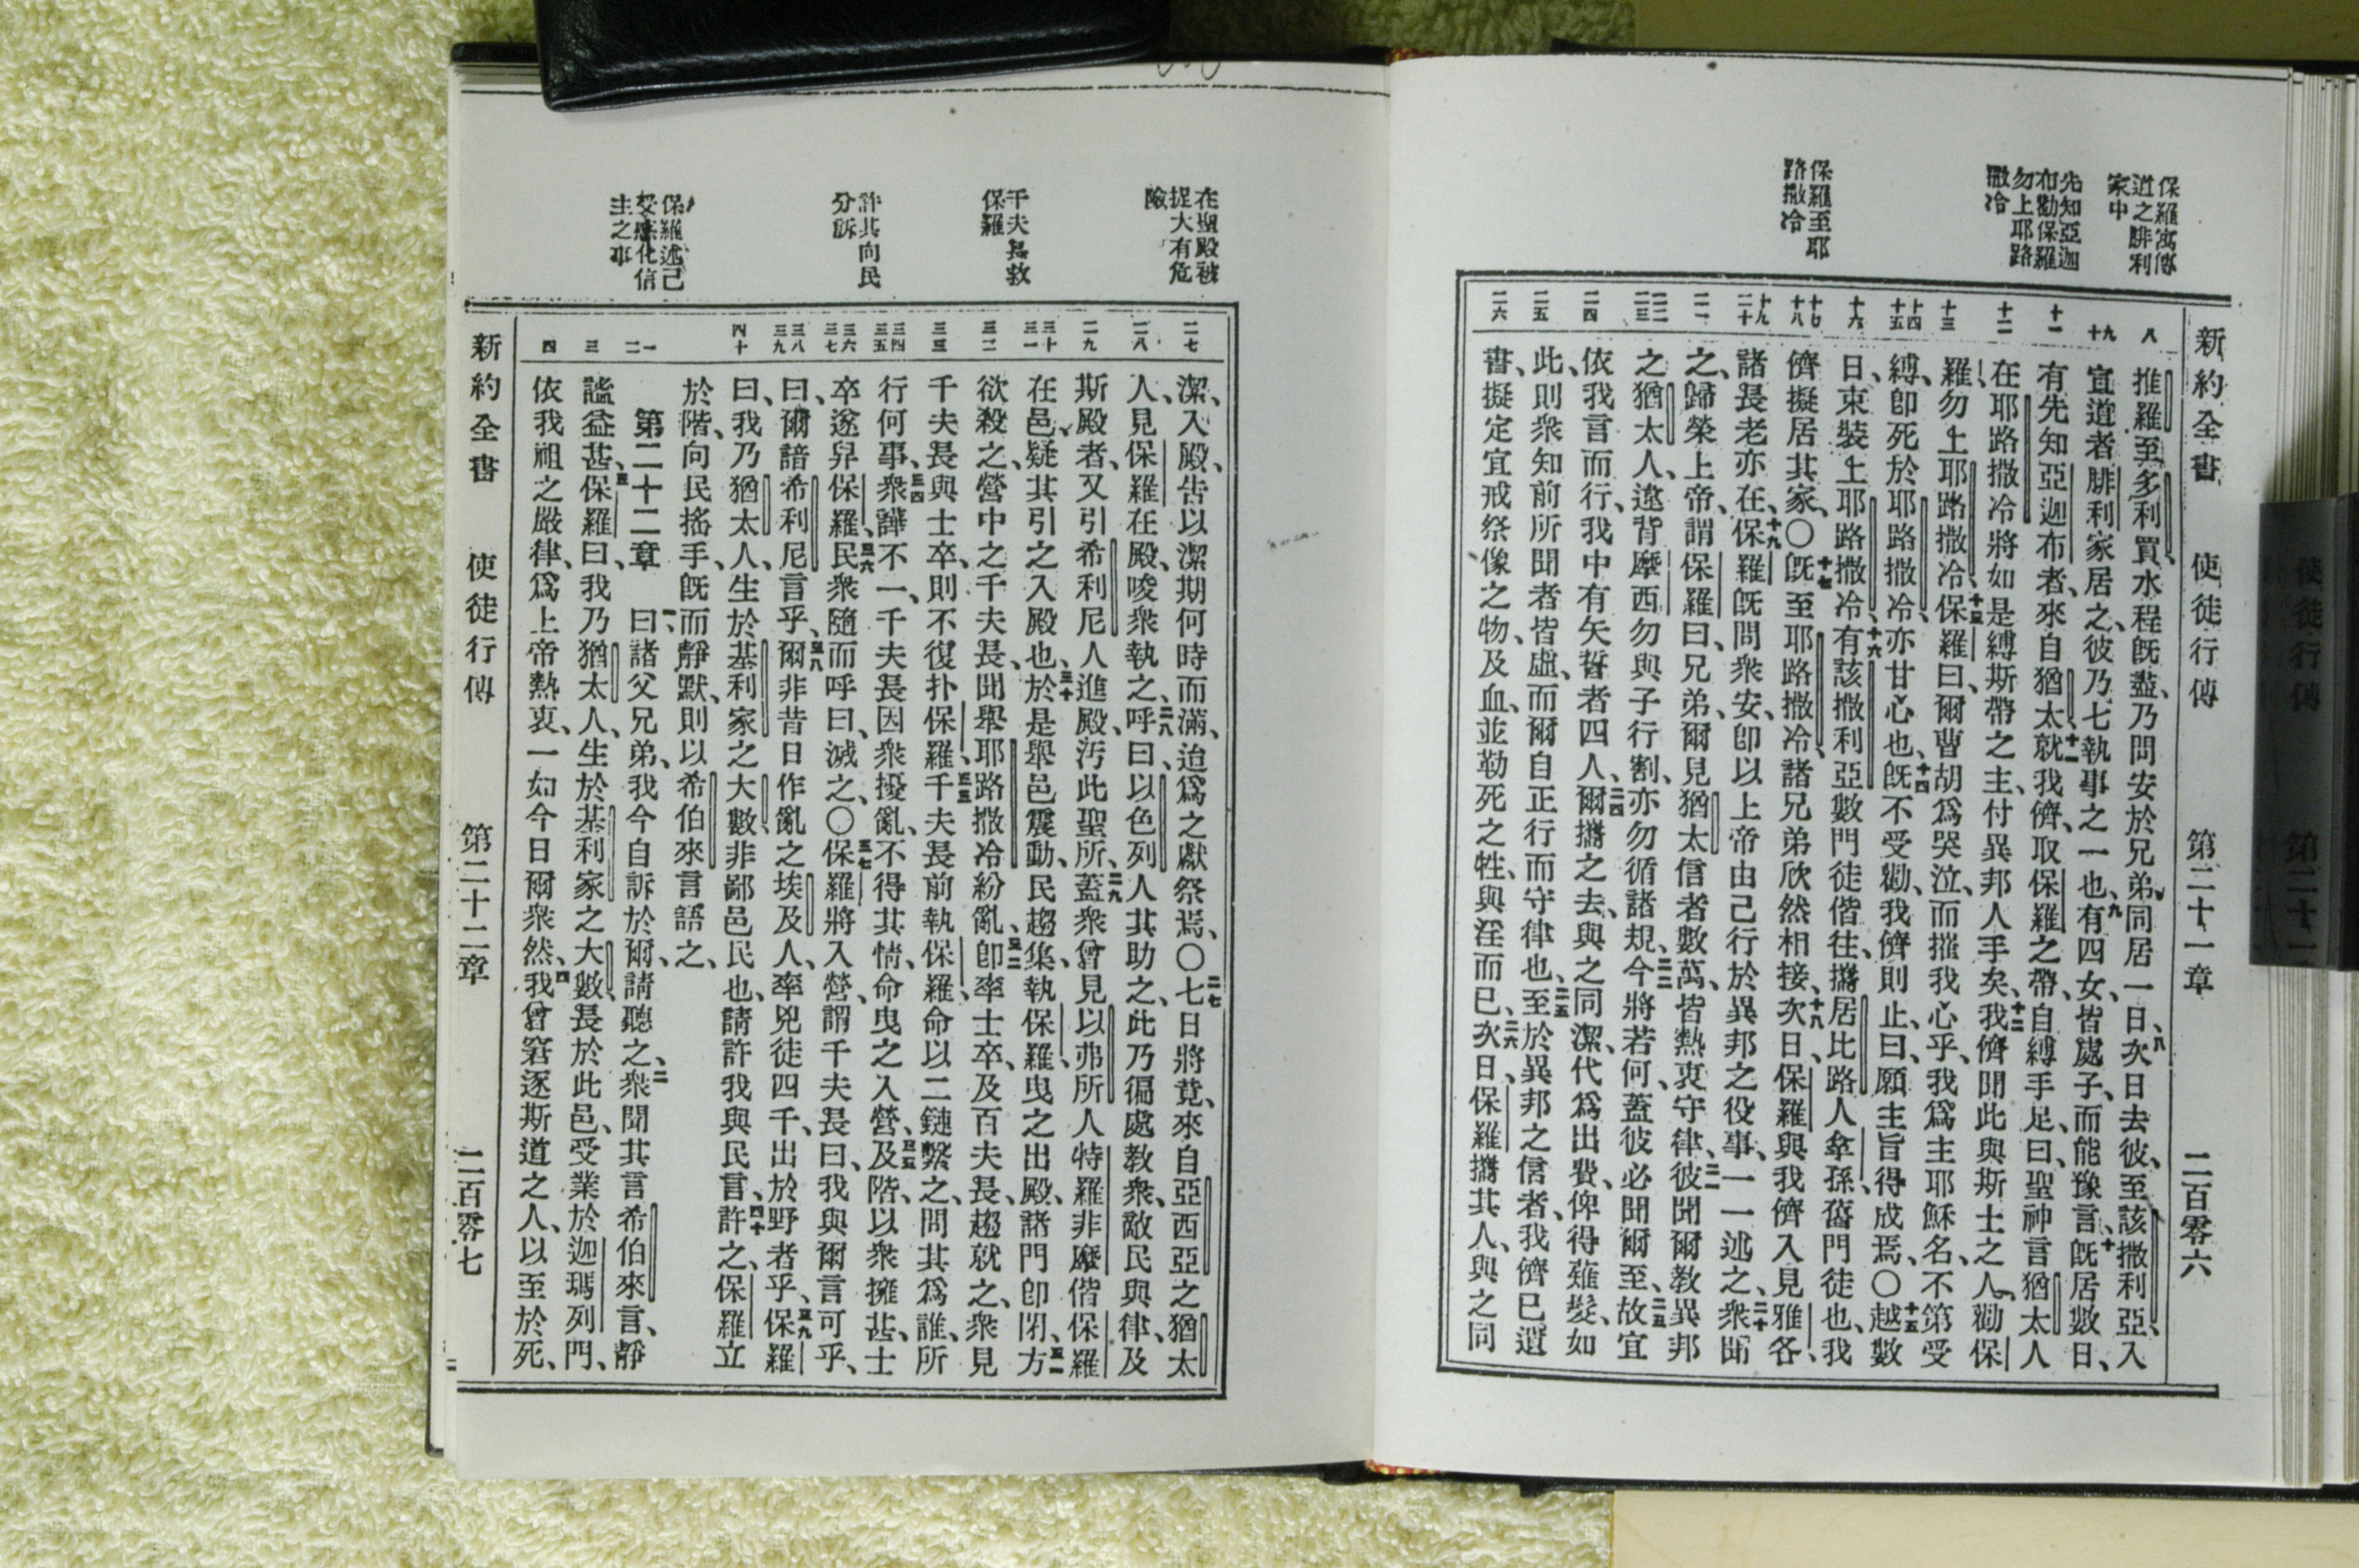 保羅寓傳
道之腓利
家中
先知亞迦
布勸保羅
勿上耶路
撒冷
保羅至耶
路撒冷
新約全書 使徒行傳 第二十一章 二百零六
八
九
十
十一
十二
十三
十四
十五
十六
十七
十八
十九
二十
二一
二二
二三
二四
二五
二六
推羅至多利買、水程旣盡、乃問安於兄弟、同居一日、八次日去彼、至該撒利亞、入
宣道者腓利家居之、彼乃七執事之一也、九有四女、皆處子、而能豫言、十旣居數日、
有先知亞迦布者、來自猶太、十一就我儕、取保羅之帶、自縛手足、曰、聖神言猶太人
在耶路撒冷將如是縛斯帶之主、付異邦人手矣、十二我儕聞此、與斯士之人、勸保
羅、勿上耶路撒冷、十三保羅曰、爾曹胡爲哭泣、而摧我心乎、我爲主耶穌名、不第受
縛、卽死於耶路撒冷、亦甘心也、十四旣不受勸、我儕則止、曰、願主旨得成焉、○十五越數
日、束裝上耶路撒冷、十六有該撒利亞數門徒偕往、攜居比路人拿孫、舊門徒也、我
儕擬居其家、○十七旣至耶路撒冷、諸兄弟欣然相接、十八次日、保羅與我儕入見雅各、
諸長老亦在、十九保羅旣問衆安、卽以上帝由己行於異邦之役事、一一述之、二十衆聞
之、歸榮上帝、謂保羅曰、兄弟、爾見猶太信者數萬、皆熱衷守律、二一彼聞爾教異邦
之猶太人、違背摩西、勿與子行割、亦勿循諸規、二二今將若何、蓋彼必聞爾至、二三故宜
依我言而行、我中有矢誓者四人、二四爾攜之去、與之同潔、代爲出費、俾得薙髮、如
此、則衆知前所聞者皆虛、而爾自正行而守律也、二五至於異邦之信者、我儕已遺
書、擬定宜戒祭像之物、及血、並勒死之牲、與淫而已、二六次日、保羅攜其人、與之同
在聖殿被
捉大有危
險
千夫長救
保羅
許其向民
分訴
保羅述己
受感化信
主之事
二七
二八
二九
三十
三一
三二
三三
三四
三五
三六
三七
三八
三九
四十
一
二
三
四
潔、入殿、告以潔期何時而滿、迨爲之獻祭焉、○二七七日將竟、來自亞西亞之猶太
人、見保羅在殿、唆衆執之、二八呼曰、以色列人其助之、此乃徧處教衆、敵民與律、及
斯殿者、又引希利尼人進殿、汚此聖所、二九蓋衆曾見以弗所人特羅非摩偕保羅
在邑、疑其引之入殿也、三十於是舉邑震動、民趨集、執保羅、曳之出殿、諸門卽閉、三一方
欲殺之、營中之千夫長、聞舉耶路撒冷紛亂、三二卽率士卒、及百夫長、趨就之、衆見
千夫長與士卒、則不復扑保羅、三三千夫長前執保羅、命以二鏈繫之、問其爲誰、所
行何事、三四衆譁不一、千夫長因衆擾亂、不得其情、命曳之入營、三五及階、以衆擁甚、士
卒遂舁保羅、三六民衆隨而呼曰、滅之、○三七保羅將入營、謂千夫長曰、我與爾言可乎、
曰、爾諳希利尼言乎、三八爾非昔日作亂之埃及人、率兇徒四千、出於野者乎、三九保羅
曰、我乃猶太人、生於基利家之大數、非鄙邑民也、請許我與民言、四十許之、保羅立
於階、向民搖手、旣而靜默、則以希伯來言語之、
第二十二章 一曰、諸父兄弟、我今自訴於爾、請聽之、二衆聞其言希伯來言、靜
謐益甚、三保羅曰、我乃猶太人、生於基利家之大數、長於此邑、受業於迦瑪列門、
依我祖之嚴律、爲上帝熱衷、一如今日爾衆然、四我曾窘逐斯道之人、以至於死、
新約全書 使徒行傳 第二十二章 二百零七